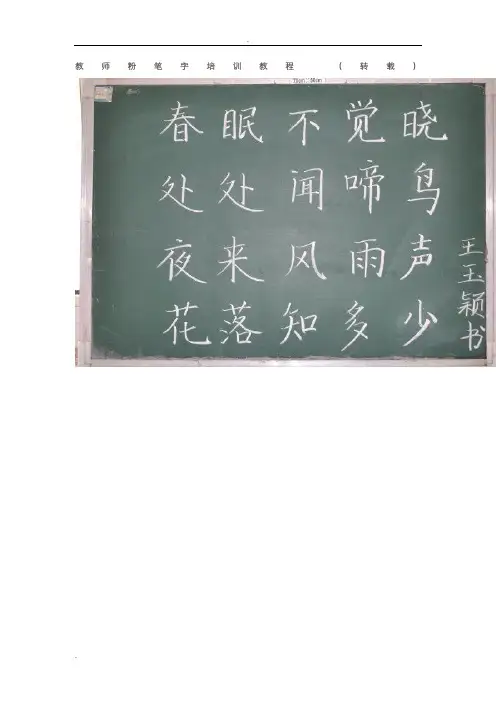 教师粉笔字培训教程 (转载)
春眠不觉晓
处处闻啼鸟
夜来风雨声
花落知多少
王玉颖书